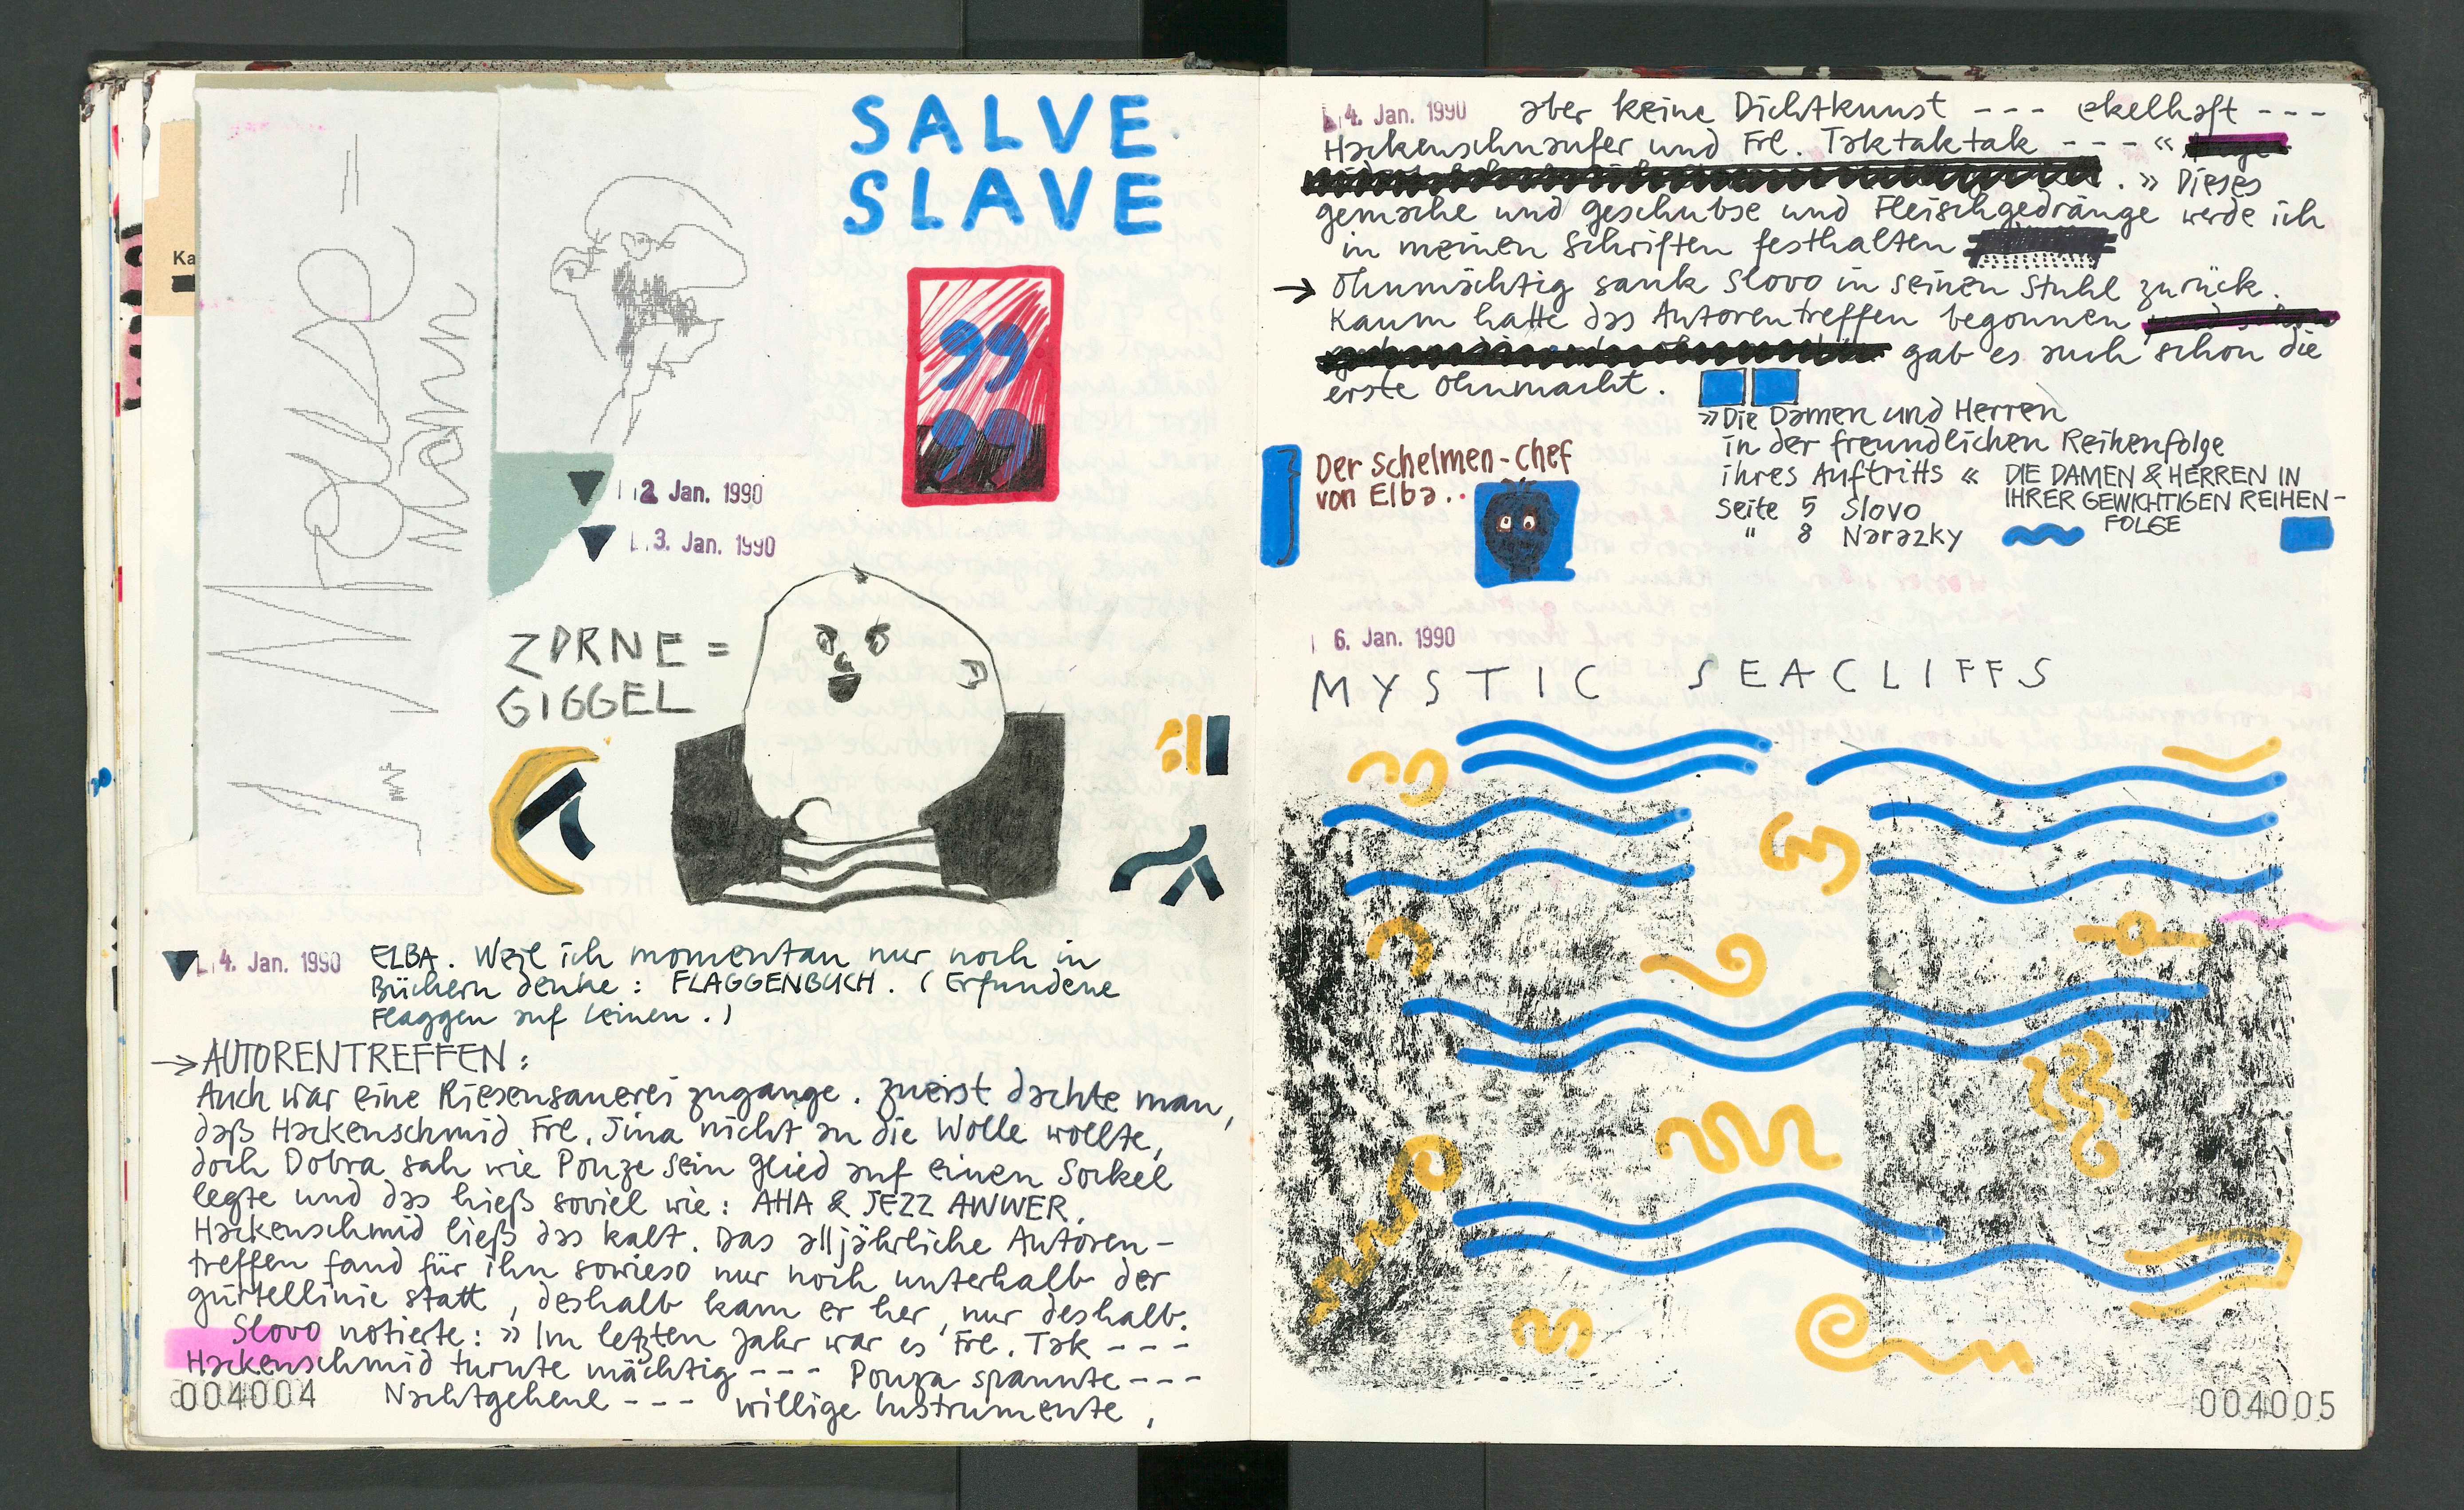 SALVE
SLAVE
Ka
Mann
2. Jan. 1990
3. Jan. 1990
ZORNE =
GIGGEL
4. Jan. 1990 ELBA. Weil ich momentan nur noch in
Büchern denke: FLAGGENBUCH. (Erfundene
Flaggen auf Leinen.)
→ AUTORENTREFFEN:
Auch war eine Riesensauerei zugange. Zuerst dachte man,
daß Hackenschmid Frl. Jina nicht an die Wolle wollte,
doch Dobra sah wie Ponze sein Glied auf einen Sockel
legte und das hieß soviel wie: AHA & JEZZ AWWER.
Hackenschmid ließ das kalt. Das alljährliche Autoren-
treffen fand für ihn sowieso nur noch unterhalb der
Gürtellinie statt, deshalb kam er her, nur deshalb.
Slovo notierte: » Im letzten Jahr war es Frl. Tak ---
Hackenschmid turnte mächtig --- Ponza spannte ---
Nachtgeheul --- willige Instrumente,
004004
4. Jan. 1990 aber keine Dichtkunst --- ekelhaft ---
Hackenschnaufer und Frl. Taktaktak --- «
. » Dieses
Gemache und Geschubse und Fleischgedränge werde ich
in meinen Schriften festhalten
→ Ohnmächtig sank Slovo in seinen Stuhl zurück.
Kaum hatte das Autorentreffen begonnen
gab es auch schon die
erste Ohnmacht.
»Die Damen und Herren
in der freundlichen Reihenfolge
ihres Auftritts «
Seite 5 Slovo
" 8 Narazky
DIE DAMEN & HERREN IN
IHRER GEWICHTIGEN REIHEN-
FOLGE
Der Schelmen-Chef
von Elba..
6. Jan. 1990
MYSTIC SEACLIFFS
004005